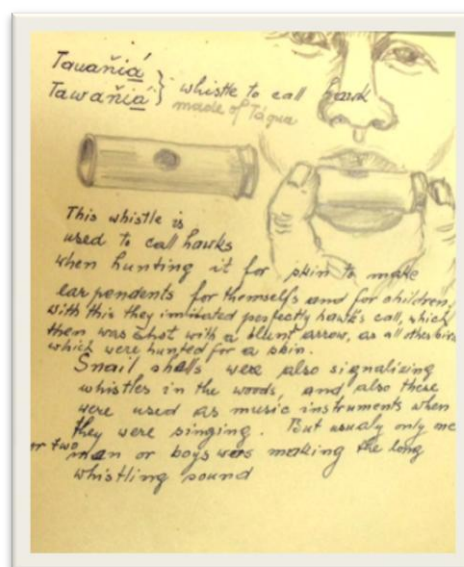 Tauañiá
Tawañiá } whistle to call hawk
made of Tágua
This whistle is
used to call hawks
when hunting it for skin to make
ear pendents for themselfs and for children,
with this they imitated perfectly hawk's call, which
then was shot with a blunt arrow, as all other bird
which were hunted for a skin.
Snail shells were also signalising
whistles in the woods, and also these
were used as music instruments when
they were singing. But usualy only one
or two man or boys was making the long
whistling sound